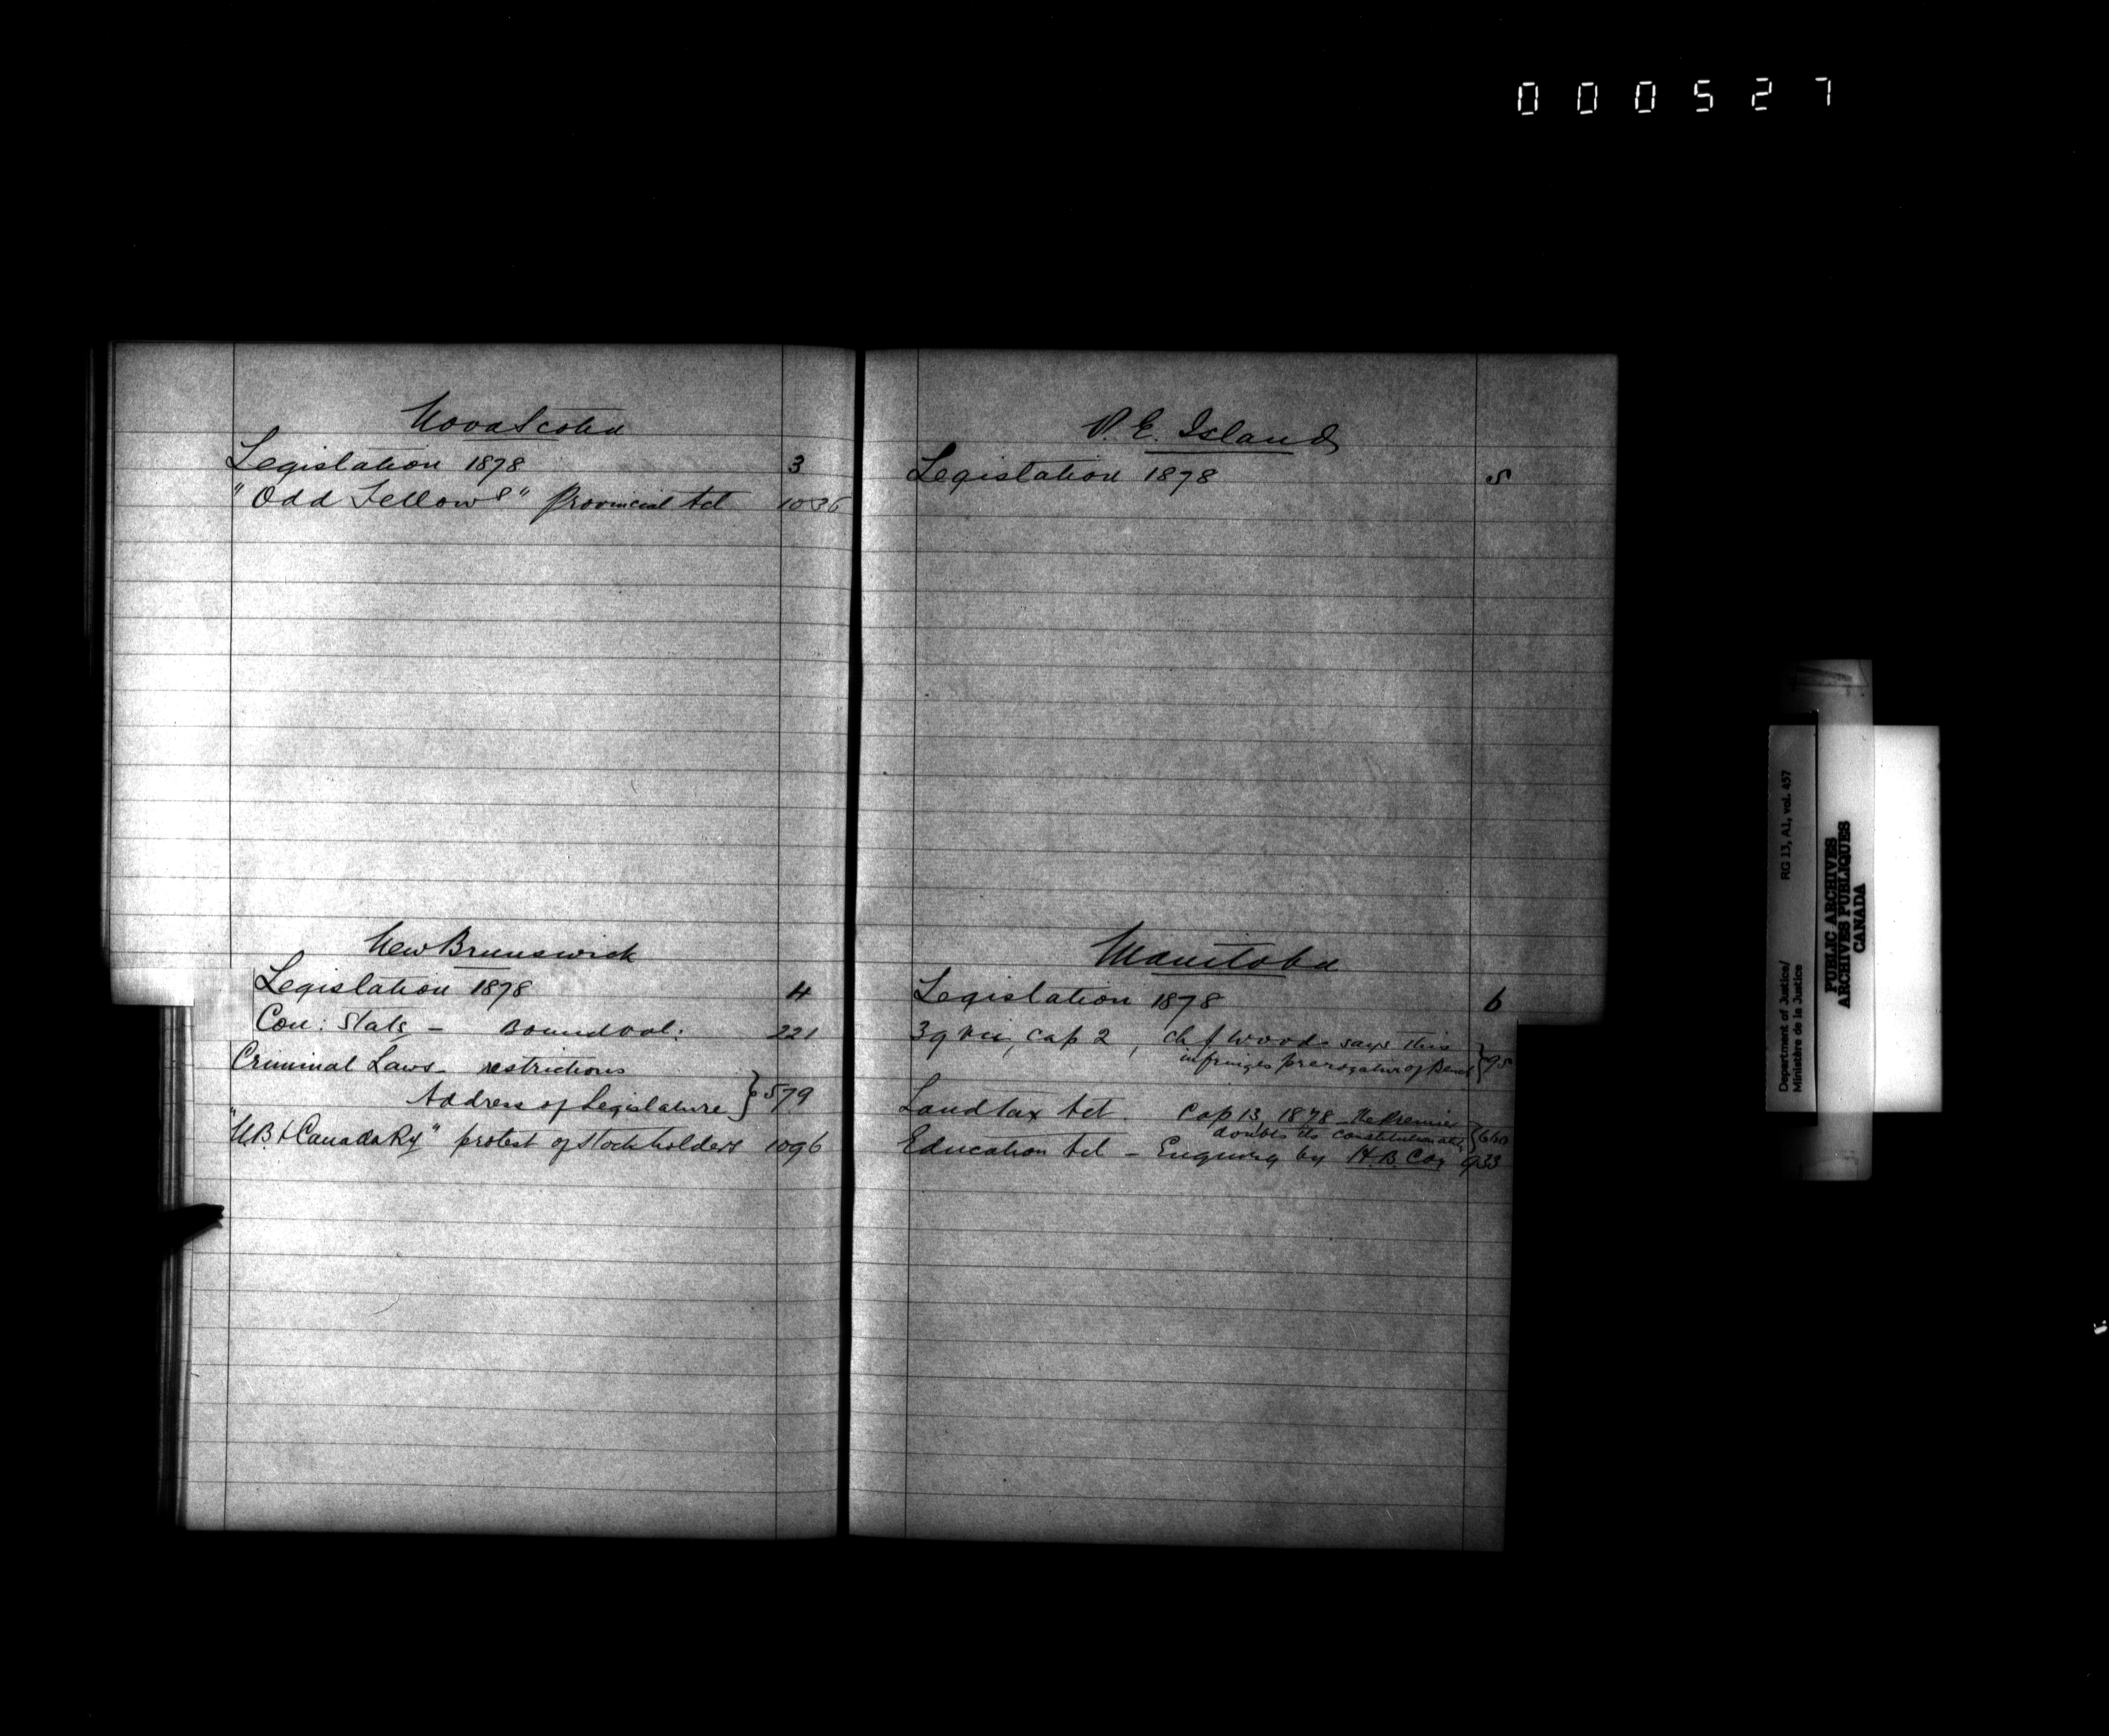 000527
Nova Scotia
Legislation 1878 3
"Odd Fellows" Provincial Act 1036
New Brunswick
Legislation 1878 4
Con: Stats - Bound vol: 221
Criminal Laws - restrictions
Address of Legislature } 579
"N.B. & Canada Ry" protest of Stockholders 1096
P. E. Island
Legislation 1878 5
Manitoba
Legislation 1878 6
39 Vic, cap 2, Ch J Wood says this
infringes prerogative of Bench } 95
Land tax Act. Cap 13, 1878 - The Premier
doubts its constitutionality
Education Act - Enquiry by H.B. Coy 933
Department of Justice/
Ministère de la Justice
RG 13, A1, vol. 457
PUBLIC ARCHIVES
ARCHIVES PUBLIQUES
CANADA